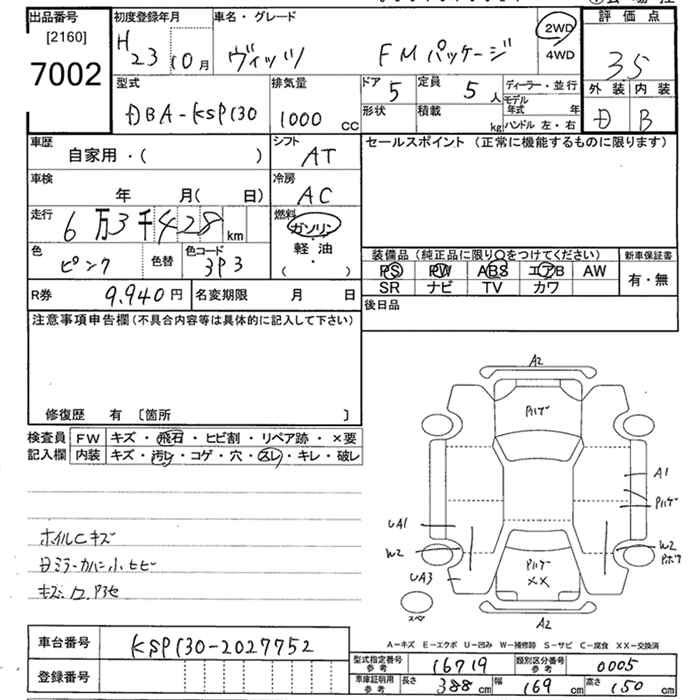 出品番号
[2160]
7002
初度登録年月
H 23 年 10 月
車名・グレード
ヴィッツ FMパッケージ
2WD
4WD
評価点
35
型式
DBA-KSP130
排気量
1000 cc
ドア 5
形状
定員 5 人
積載 kg
ディーラー・並行
モデル年式 年
ハンドル 左・右
外装 内装
D B
車歴
自家用・( )
シフト
AT
セールスポイント (正常に機能するものに限ります)
車検
年 月( 日)
冷房
AC
走行
6万3千428 km
燃料
ガソリン
軽油
( )
色
ピンク
色替
色コード
3P3
装備品 (純正品に限り○をつけてください)
新車保証書
PS PW ABS エアB AW
SR ナビ TV カワ
有・無
R券 9,940円
名変期限 月 日
後日品
注意事項申告欄 (不具合内容等は具体的に記入して下さい)
修復歴 有 〔箇所 〕
検査員
記入欄
FW キズ・飛石・ヒビ割・リペア跡・×要
内装 キズ・汚レ・コゲ・穴・スレ・キレ・破レ
ホイルCキズ
日ミラーカバー小ヒビ
A2
Pハゲ
A1
Pハゲ
UA1
W2
UA3
W2
Pボケ
Pハゲ
XX
スペア
A2
A-キズ E-エクボ U-凹み W-補修跡 S-サビ C-腐食 XX-交換済
車台番号 KSP130-2027752
登録番号
型式指定番号 参考 16719
類別区分番号 参考 0005
車庫証明用 参考 長さ 388 cm 幅 169 cm 高さ 150 cm